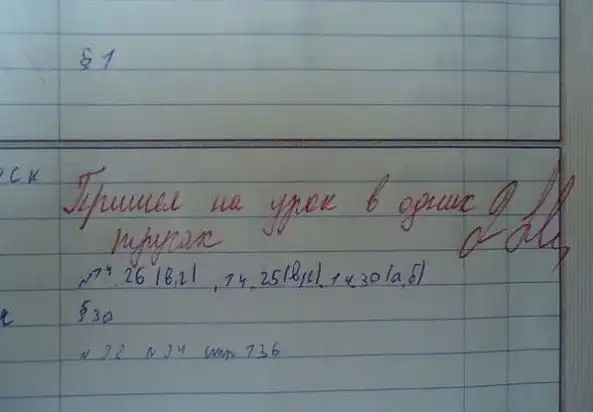 § 1
оск
Пришел на урок в одних
трусах
№14.26 (в,г), 14.25(в,г), 14.30(а,б)
§30
№ 34 стр 136